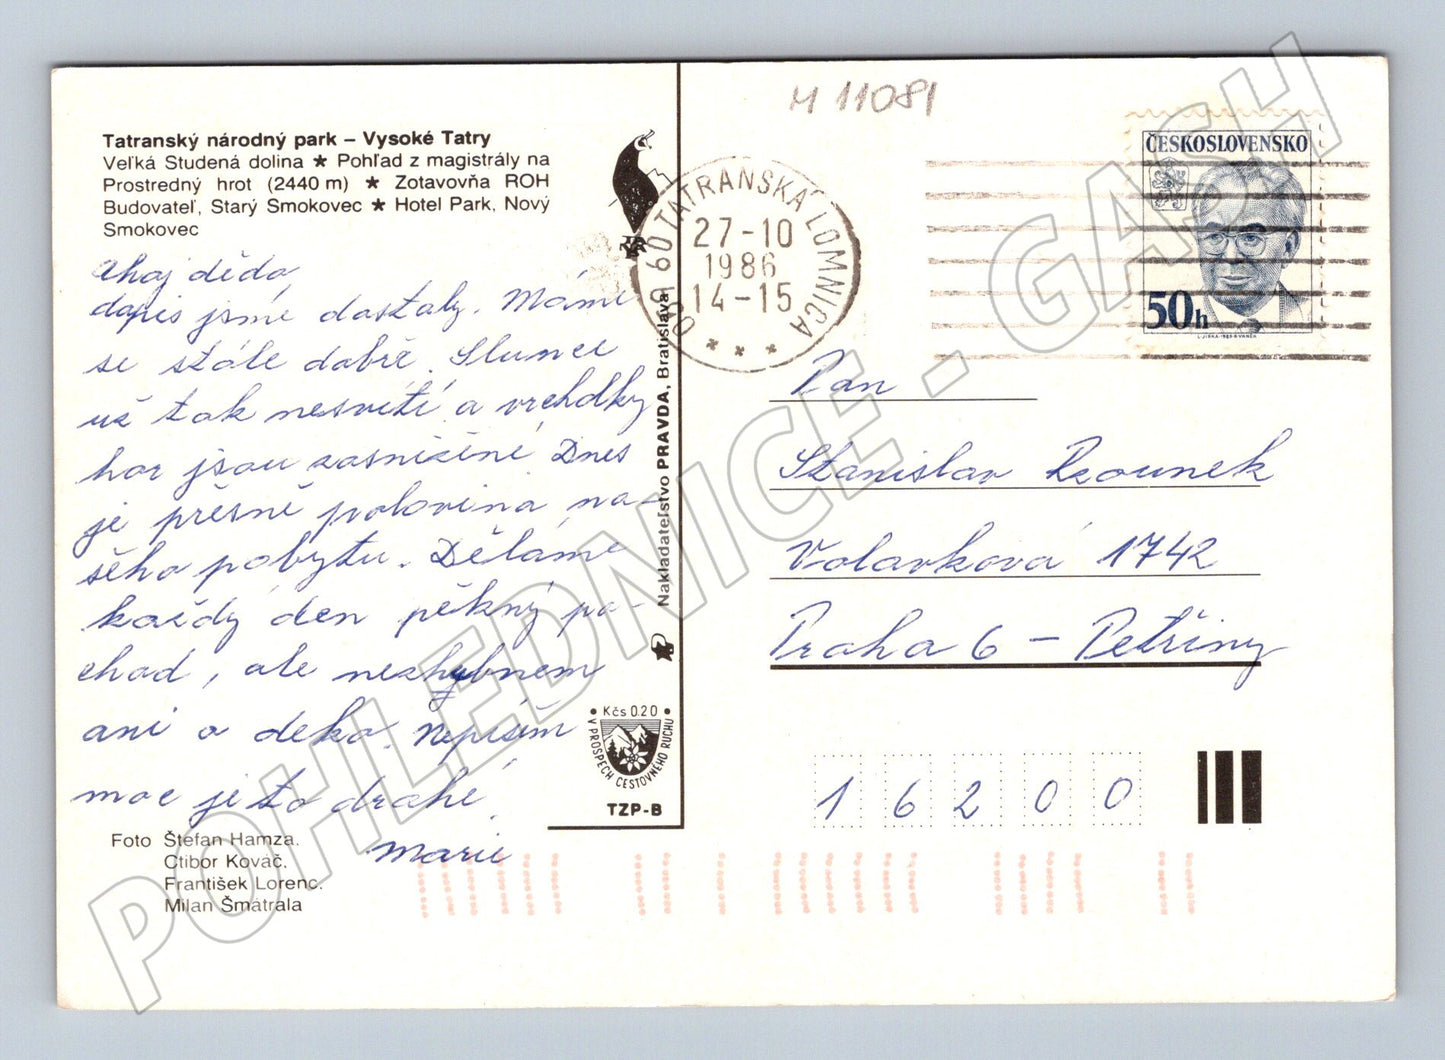 Tatranský národný park – Vysoké Tatry
Veľká Studená dolina ★ Pohľad z magistrály na
Prostredný hrot (2440 m) ★ Zotavovňa ROH
Budovateľ, Starý Smokovec ★ Hotel Park, Nový
Smokovec
Ahoj dědo
dopis jsme dostaly. Máme
se stále dobře. Slunce
už tak nesvítí a vrcholky
hor jsou zasněžené. Dnes
je přesně polovina na-
šeho pobytu. Děláme
každý den pěkný po-
chod, ale nezhubnem
ani o deko. Nepíším
moc je to drahé.
Marie
Foto Štefan Hamza.
Ctibor Kováč.
František Lorenc.
Milan Šmátrala
Nakladateľstvo PRAVDA, Bratislava
• Kčs 0.20 •
V PROSPECH CESTOVNÉHO RUCHU
TZP-B
M 11081
059 60 TATRANSKÁ LOMNICA
27-10
1986
14-15
★ ★ ★
ČESKOSLOVENSKO
50h
Pan
Stanislav Rzounek
Volavková 1742
Praha 6 – Petřiny
1 6 2 0 0
POHLEDNICE - GASH